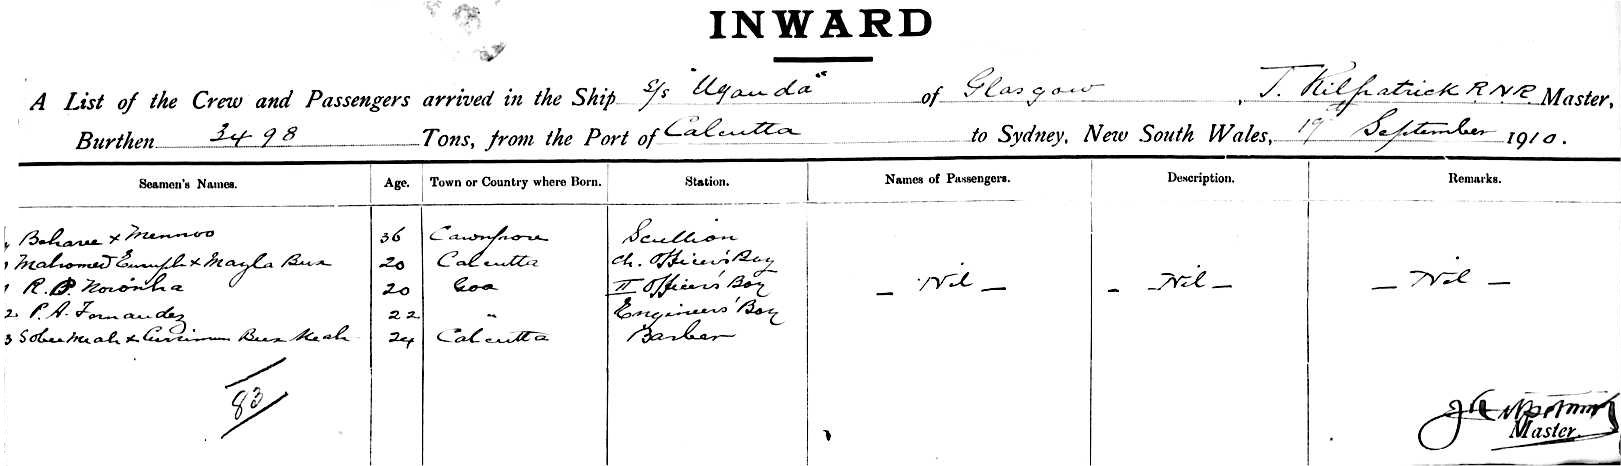 INWARD
A List of the Crew and Passengers arrived in the Ship S/s "Uganda" of Glasgow, T. Kilpatrick R.N.R. Master,
Burthen 3498 Tons, from the Port of Calcutta to Sydney, New South Wales, 19 September 1910.
Seamen's Names. Age. Town or Country where Born. Station. Names of Passengers. Description. Remarks.
Beharee x Mennoo 36 Cawnpore Scullion
1 Mahomed x Mayla Bux 20 Calcutta Ch. Officer's Boy
1 R. P. Noronha 20 Goa II Officer's Boy — Nil — — Nil — — Nil —
2 P. A. Fernandez 22 " Engineers' Boy
3 x Bux 24 Calcutta Barber
83
Master.